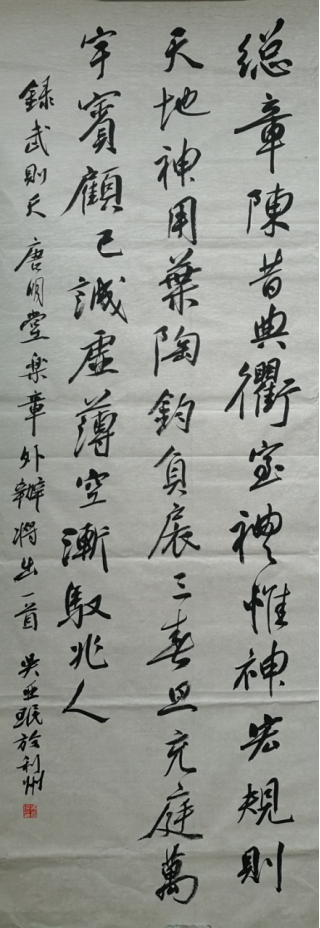 總章陳昔典衢室禮惟神宏規則
天地神用葉陶鈞負扆三春旦充庭萬
宇賓顧己誠虛薄空漸馭兆人
錄武則天唐明堂樂章外辦將出一首 吳亞珉於利州